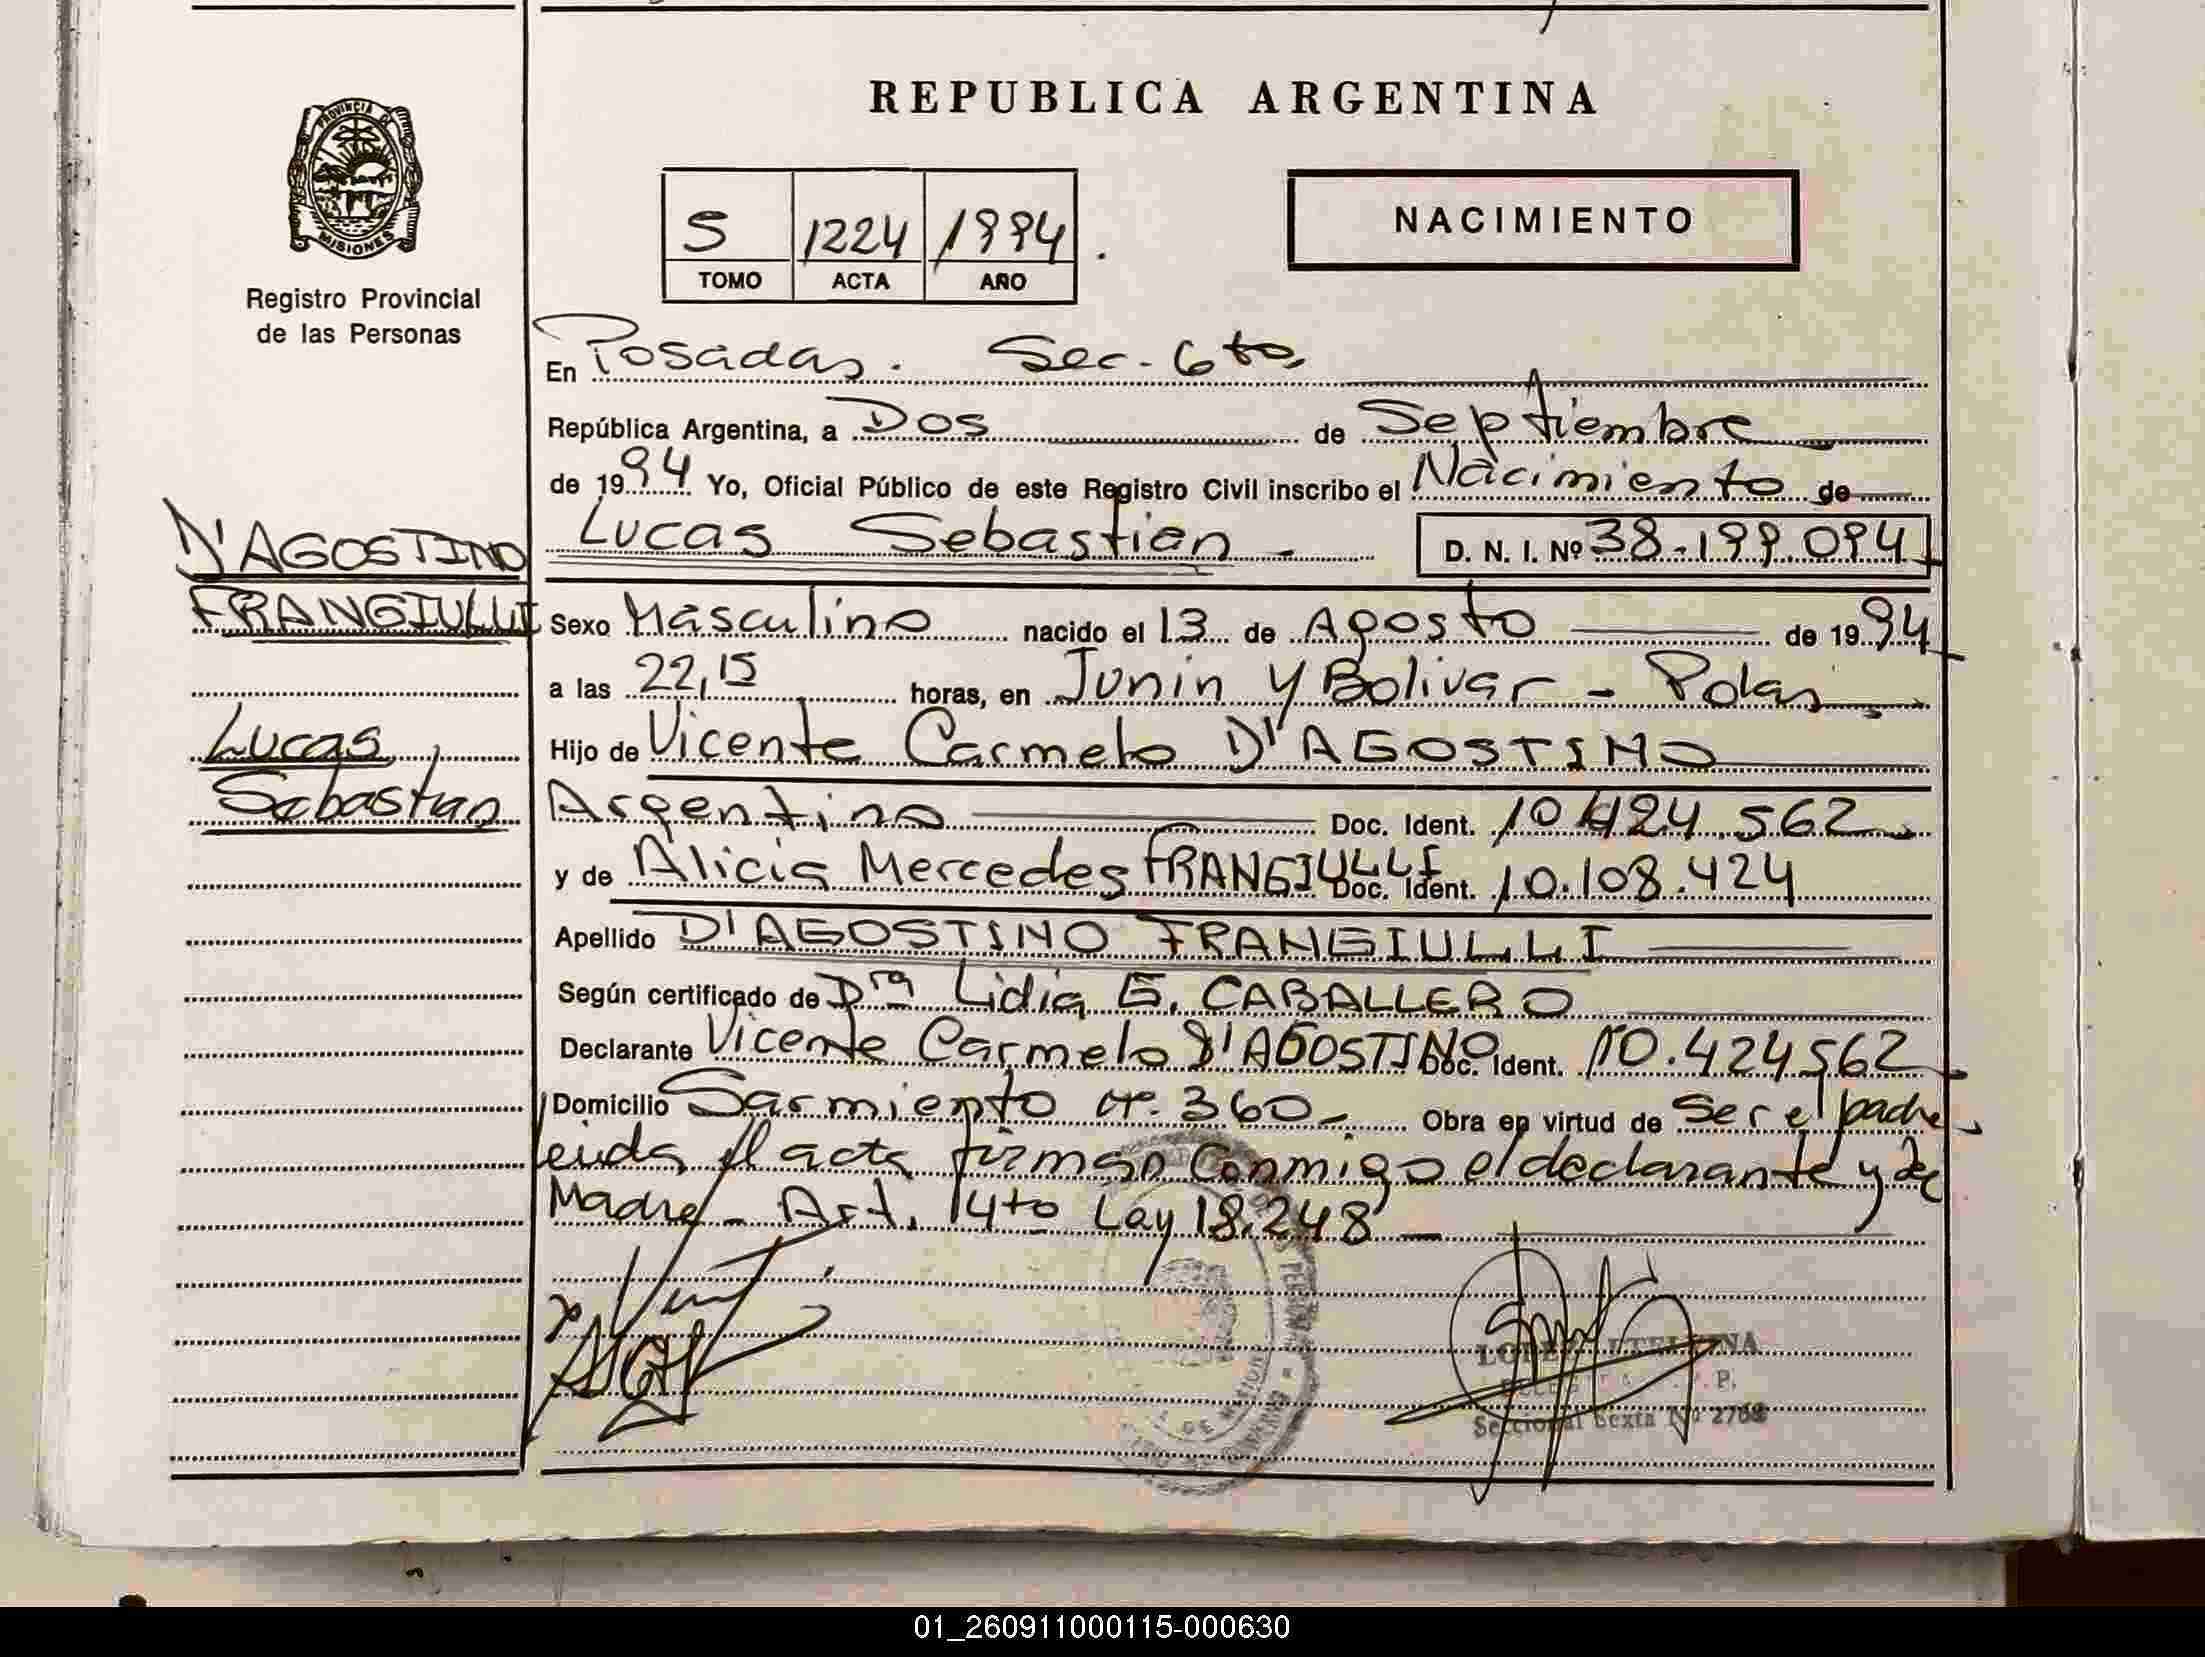 REPUBLICA ARGENTINA
PROVINCIA DE MISIONES
Registro Provincial
de las Personas
5 1224 1994
TOMO ACTA AÑO
NACIMIENTO
En Posadas. Sec. 6to.
República Argentina, a Dos de Septiembre
de 1994 Yo, Oficial Público de este Registro Civil inscribo el Nacimiento de
D'AGOSTINO
FRANGIULLI
Lucas
Sebastian
Lucas Sebastián - D. N. I. Nº 38.199.094
Sexo Masculino nacido el 13 de Agosto de 1994
a las 22,15 horas, en Junin y Bolivar - Pdas
Hijo de Vicente Carmelo D'AGOSTINO
Argentino Doc. Ident. 10.424.562
y de Alicia Mercedes FRANGIULLI Doc. Ident. 10.108.424
Apellido D'AGOSTINO FRANGIULLI
Según certificado de Dra Lidia E. CABALLERO
Declarante Vicente Carmelo D'AGOSTINO Doc. Ident. 10.424562
Domicilio Sarmiento nº. 360 Obra en virtud de Ser el padre
Leida el acta firman conmigo el declarante y la
Madre - Art. 14to Ley 18.248
Seccional Sexta Nº 2768
01_260911000115-000630